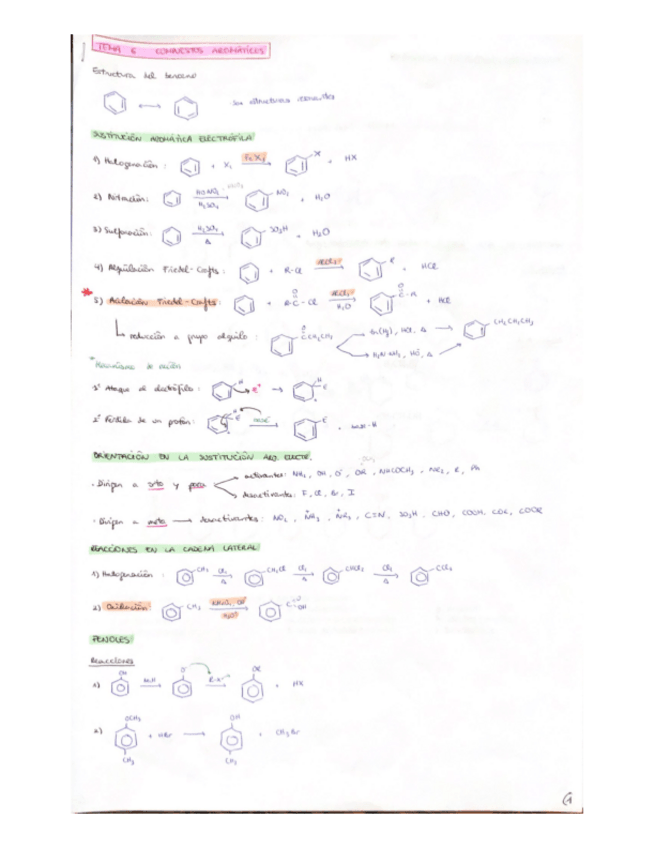 TEMA 6 COMPUESTOS AROMÁTICOS
Estructura del benceno
son estructuras resonantes
SUSTITUCIÓN AROMÁTICA ELECTRÓFILA
1) Halogenación: + X₂ FeX₃ X + HX
2) Nitración: HONO₂ H₂SO₄ NO₂ + H₂O
3) Sulfonación: H₂SO₄ Δ SO₃H + H₂O
4) Alquilación Friedel-Crafts: + R-Cl AlCl₃ R + HCl
5) Acilación Friedel-Crafts: + R-C-Cl O AlCl₃ H₂O O C-R + HCl
reducción a grupo alquilo: O CCH₂CH₃ Zn(Hg), HCl, Δ CH₂CH₂CH₃
H₂N-NH₂, HO⁻, Δ
Mecanismo de
1º Ataque al electrófilo: H E⁺ H E
2º Pérdida de un protón: H E base E + base-H
ORIENTACIÓN EN LA SUSTITUCIÓN ARO. ELECTR.
· Dirigen a orto y para activantes: NH₂, OH, O⁻, OR, NHCOCH₃, NR₂, R, Ph
desactivantes: F, Cl, Br, I
· Dirigen a meta desactivantes: NO₂, NH₃, NR₃, C≡N, SO₃H, CHO, COOH, COR, COOR
REACCIONES EN LA CADENA LATERAL
1) Halogenación: CH₃ Cl₂ Δ CH₂Cl Cl₂ Δ CHCl₂ Cl₂ Δ CCl₃
2) Oxidación: CH₃ KMnO₄, OH⁻ H₃O⁺ C O OH
FENOLES
Reacciones
1) OH NaH O⁻ R-X OR + HX
2) OCH₃ CH₃ + HBr OH CH₃ + CH₃Br
1